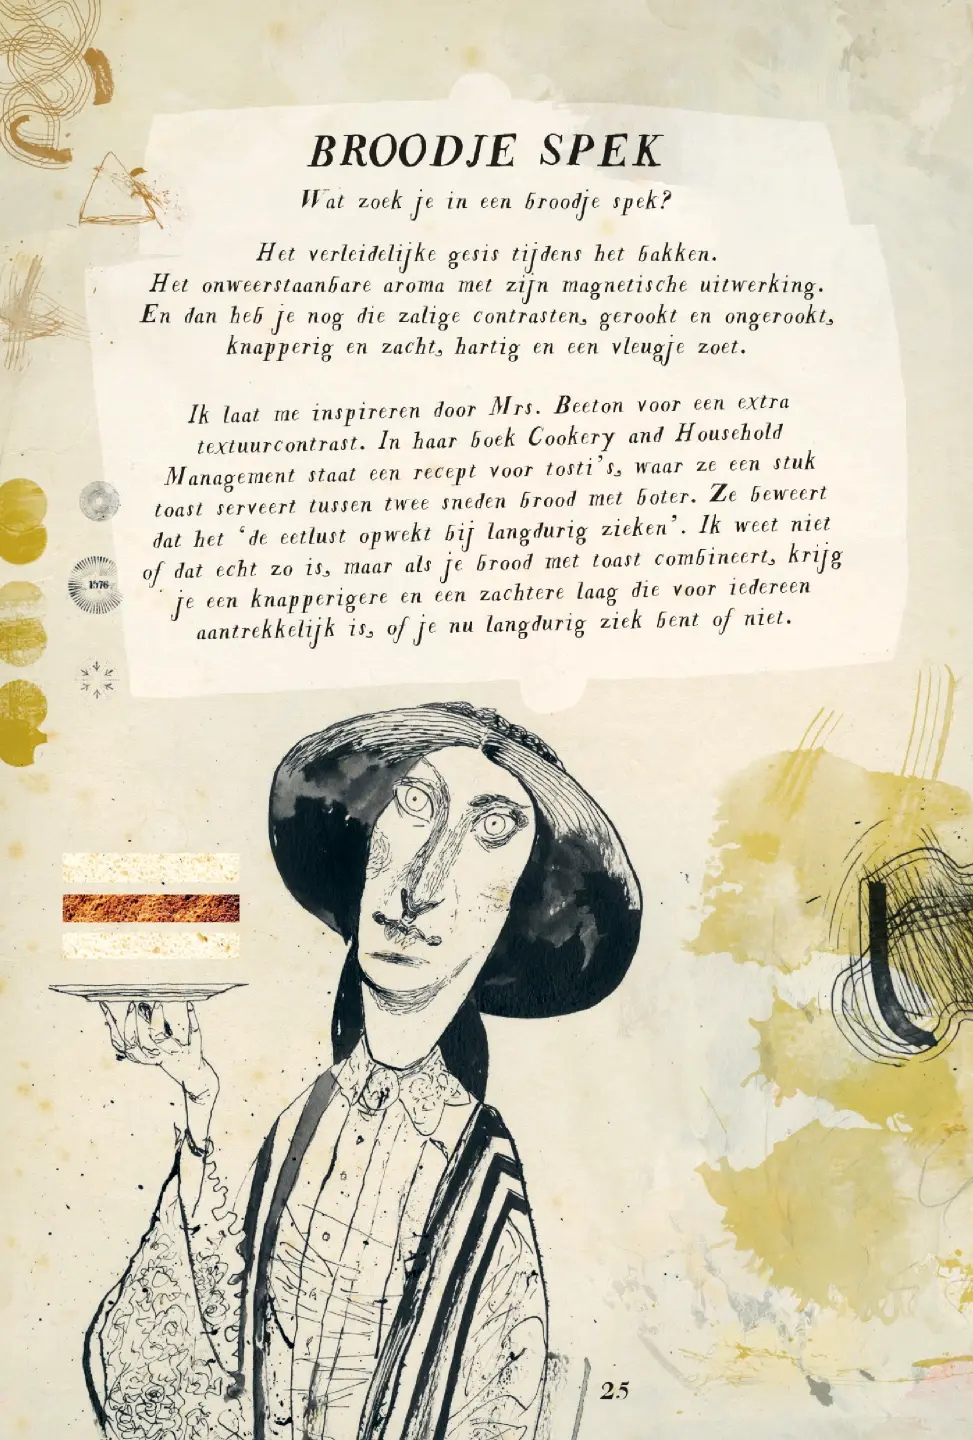 BROODJE SPEK
Wat zoek je in een broodje spek?
Het verleidelijke gesis tijdens het bakken.
Het onweerstaanbare aroma met zijn magnetische uitwerking.
En dan heb je nog die zalige contrasten, gerookt en ongerookt,
knapperig en zacht, hartig en een vleugje zoet.
Ik laat me inspireren door Mrs. Beeton voor een extra
textuurcontrast. In haar boek Cookery and Household
Management staat een recept voor tosti's, waar ze een stuk
toast serveert tussen twee sneden brood met boter. Ze beweert
dat het ‘de eetlust opwekt bij langdurig zieken’. Ik weet niet
of dat echt zo is, maar als je brood met toast combineert, krijg
je een knapperigere en een zachtere laag die voor iedereen
aantrekkelijk is, of je nu langdurig ziek bent of niet.
1576
25